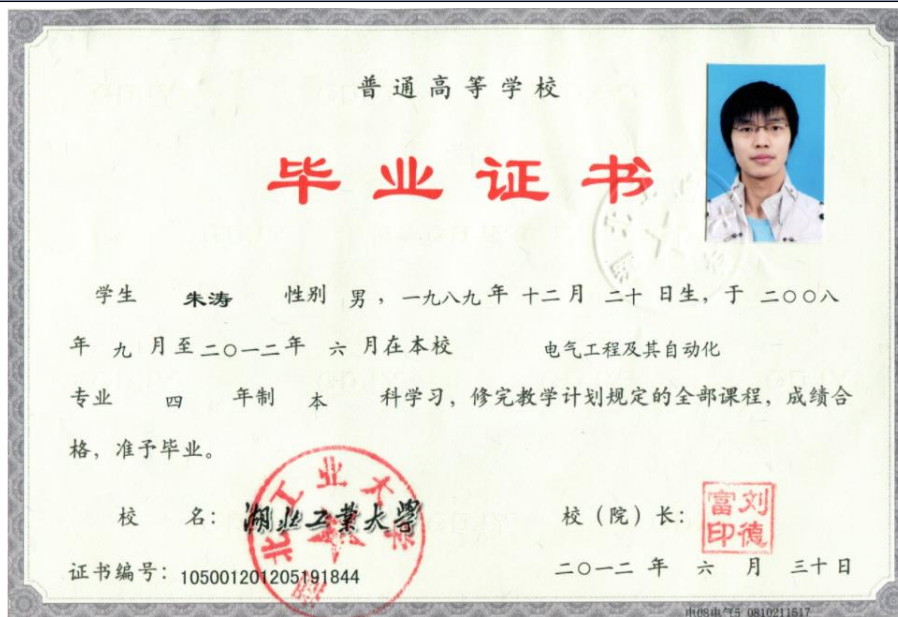 普通高等学校
毕业证书
学生 朱涛 性别 男，一九八九年 十二月 二十 日生，于 二〇〇八
年 九 月至二〇一二年 六 月在本校 电气工程及其自动化
专业 四 年制 本 科学习，修完教学计划规定的全部课程，成绩合
格，准予毕业。
校 名：湖北工业大学
湖北工业大学
校（院）长：
刘德富印
证书编号：105001201205191844
二〇一二 年 六 月 三十 日
电08电气5 0810211517